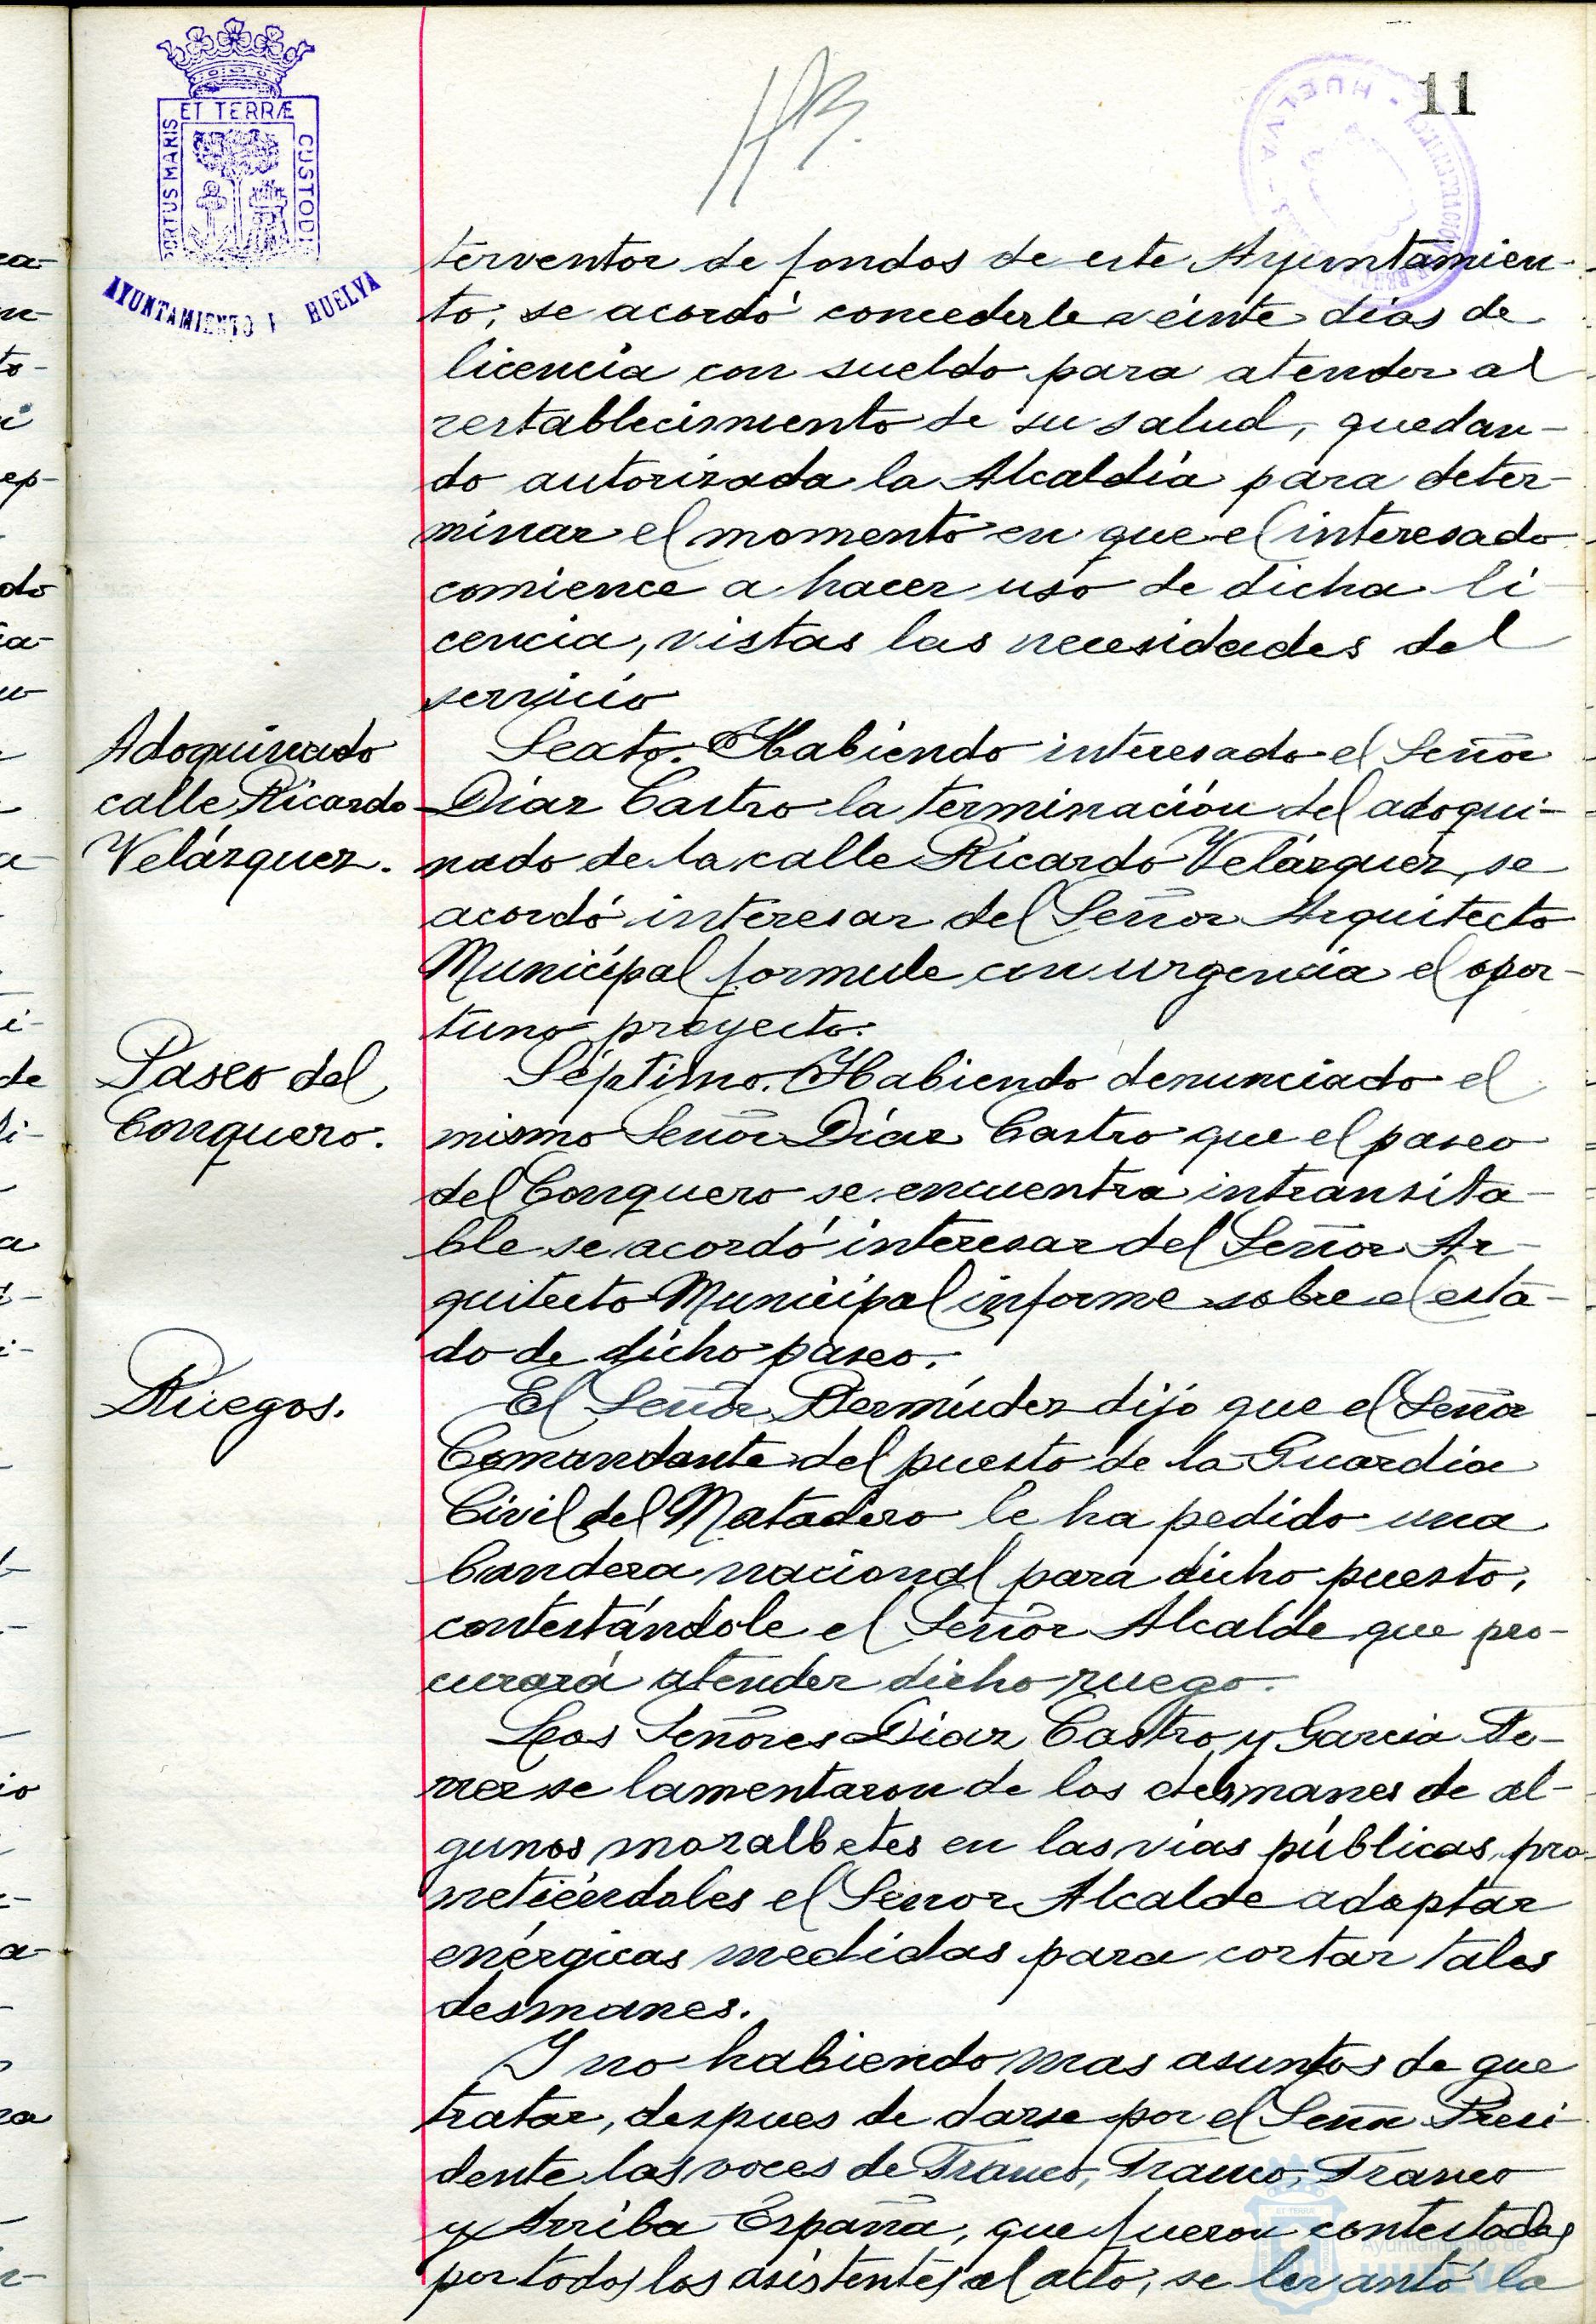 11
ET TERRÆ
PORTUS MARIS
CUSTODI
AYUNTAMIENTO HUELVA
HUELVA
terventor de fondos de este Ayuntamien-
to, se acordó concederle veinte días de
licencia con sueldo para atender al
restablecimiento de su salud, quedan-
do autorizada la Alcaldía para deter-
minar el momento en que el interesado
comience a hacer uso de dicha li
cencia, vistas las necesidades del
servicio
Adoquinado
calle Ricardo
Velázquez.
Sexto. Habiendo interesado el Señor
Díaz Castro la terminación del adoqui-
nado de la calle Ricardo Velázquez, se
acordó interesar del Señor Arquitecto
Municipal formule con urgencia el opor-
tuno proyecto.
Paseo del
Conquero.
Séptimo. Habiendo denunciado el
mismo Señor Díaz Castro que el paseo
del Conquero se encuentra intransita-
ble se acordó interesar del Señor Ar-
quitecto Municipal informe sobre el esta-
do de dicho paseo.
Ruegos.
El Señor Bermúdez dijo que el Señor
Comandante del puesto de la Guardia
Civil del Matadero le ha pedido una
bandera nacional para dicho puesto,
contestándole el Señor Alcalde que pro-
curará atender dicho ruego.
Los Señores Diaz Castro y Garcia
se lamentaron de los desmanes de al-
gunos mozalbetes en las vías públicas, pro-
metiéndoles el Señor Alcalde adoptar
enérgicas medidas para cortar tales
desmanes.
Y no habiendo mas asuntos de que
tratar, despues de darse por el Señor Presi
dente las voces de Franco, Franco, Franco
y Arriba España, que fueron contestadas
por todos los asistentes al acto, se levantó la
Ayuntamiento de
HUELVA